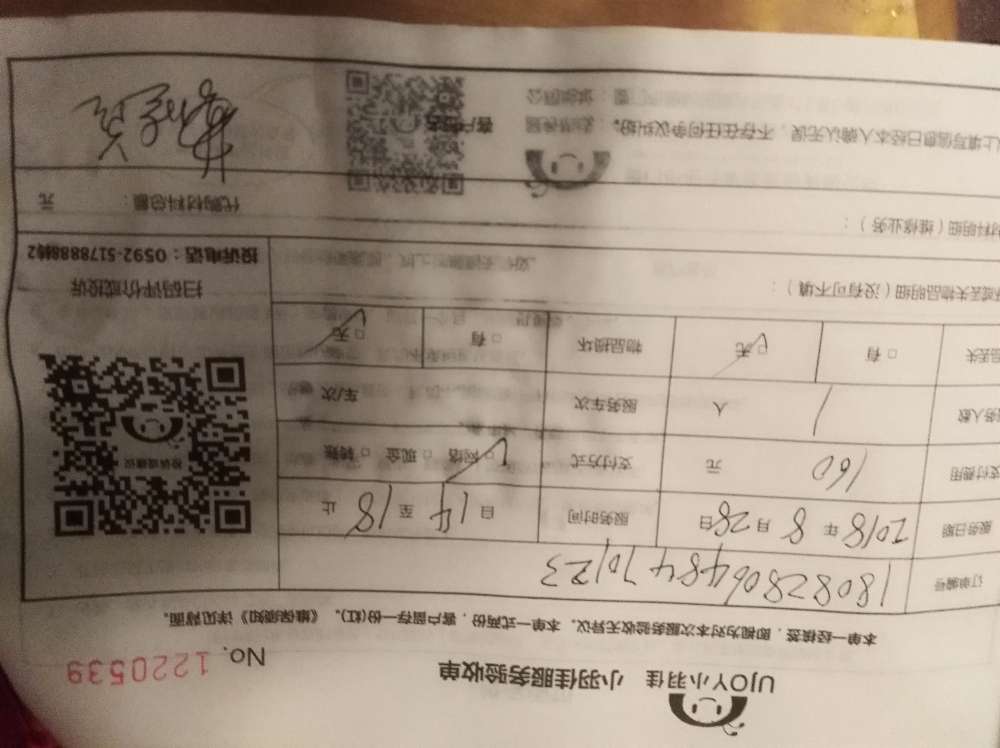 UJOY小羽佳 小羽佳服务验收单
No. 1220539
本单一经核签，即视为对本次服务验收无异议，本单一式两份，客户留存一份(红)。《维保须知》详见背面。
订单编号 18082806484 70123
服务日期 2018年 8月28日 服务时间 自 14 至 18 止
支付费用 160 元 支付方式 □网络 □现金 □转账
务人数 1 人 服务车次 车/次
品丢失 □有 □无 物品损坏 □有 □无
投诉或建议
扫码评价或投诉
投诉电话：0592-5178888转2
或丢失物品明细（没有可不填）：
材料明细（维修业务）：
代购材料总额： 元
上填写信息已经本人确认无误，不存在任何争议纠纷。
客户